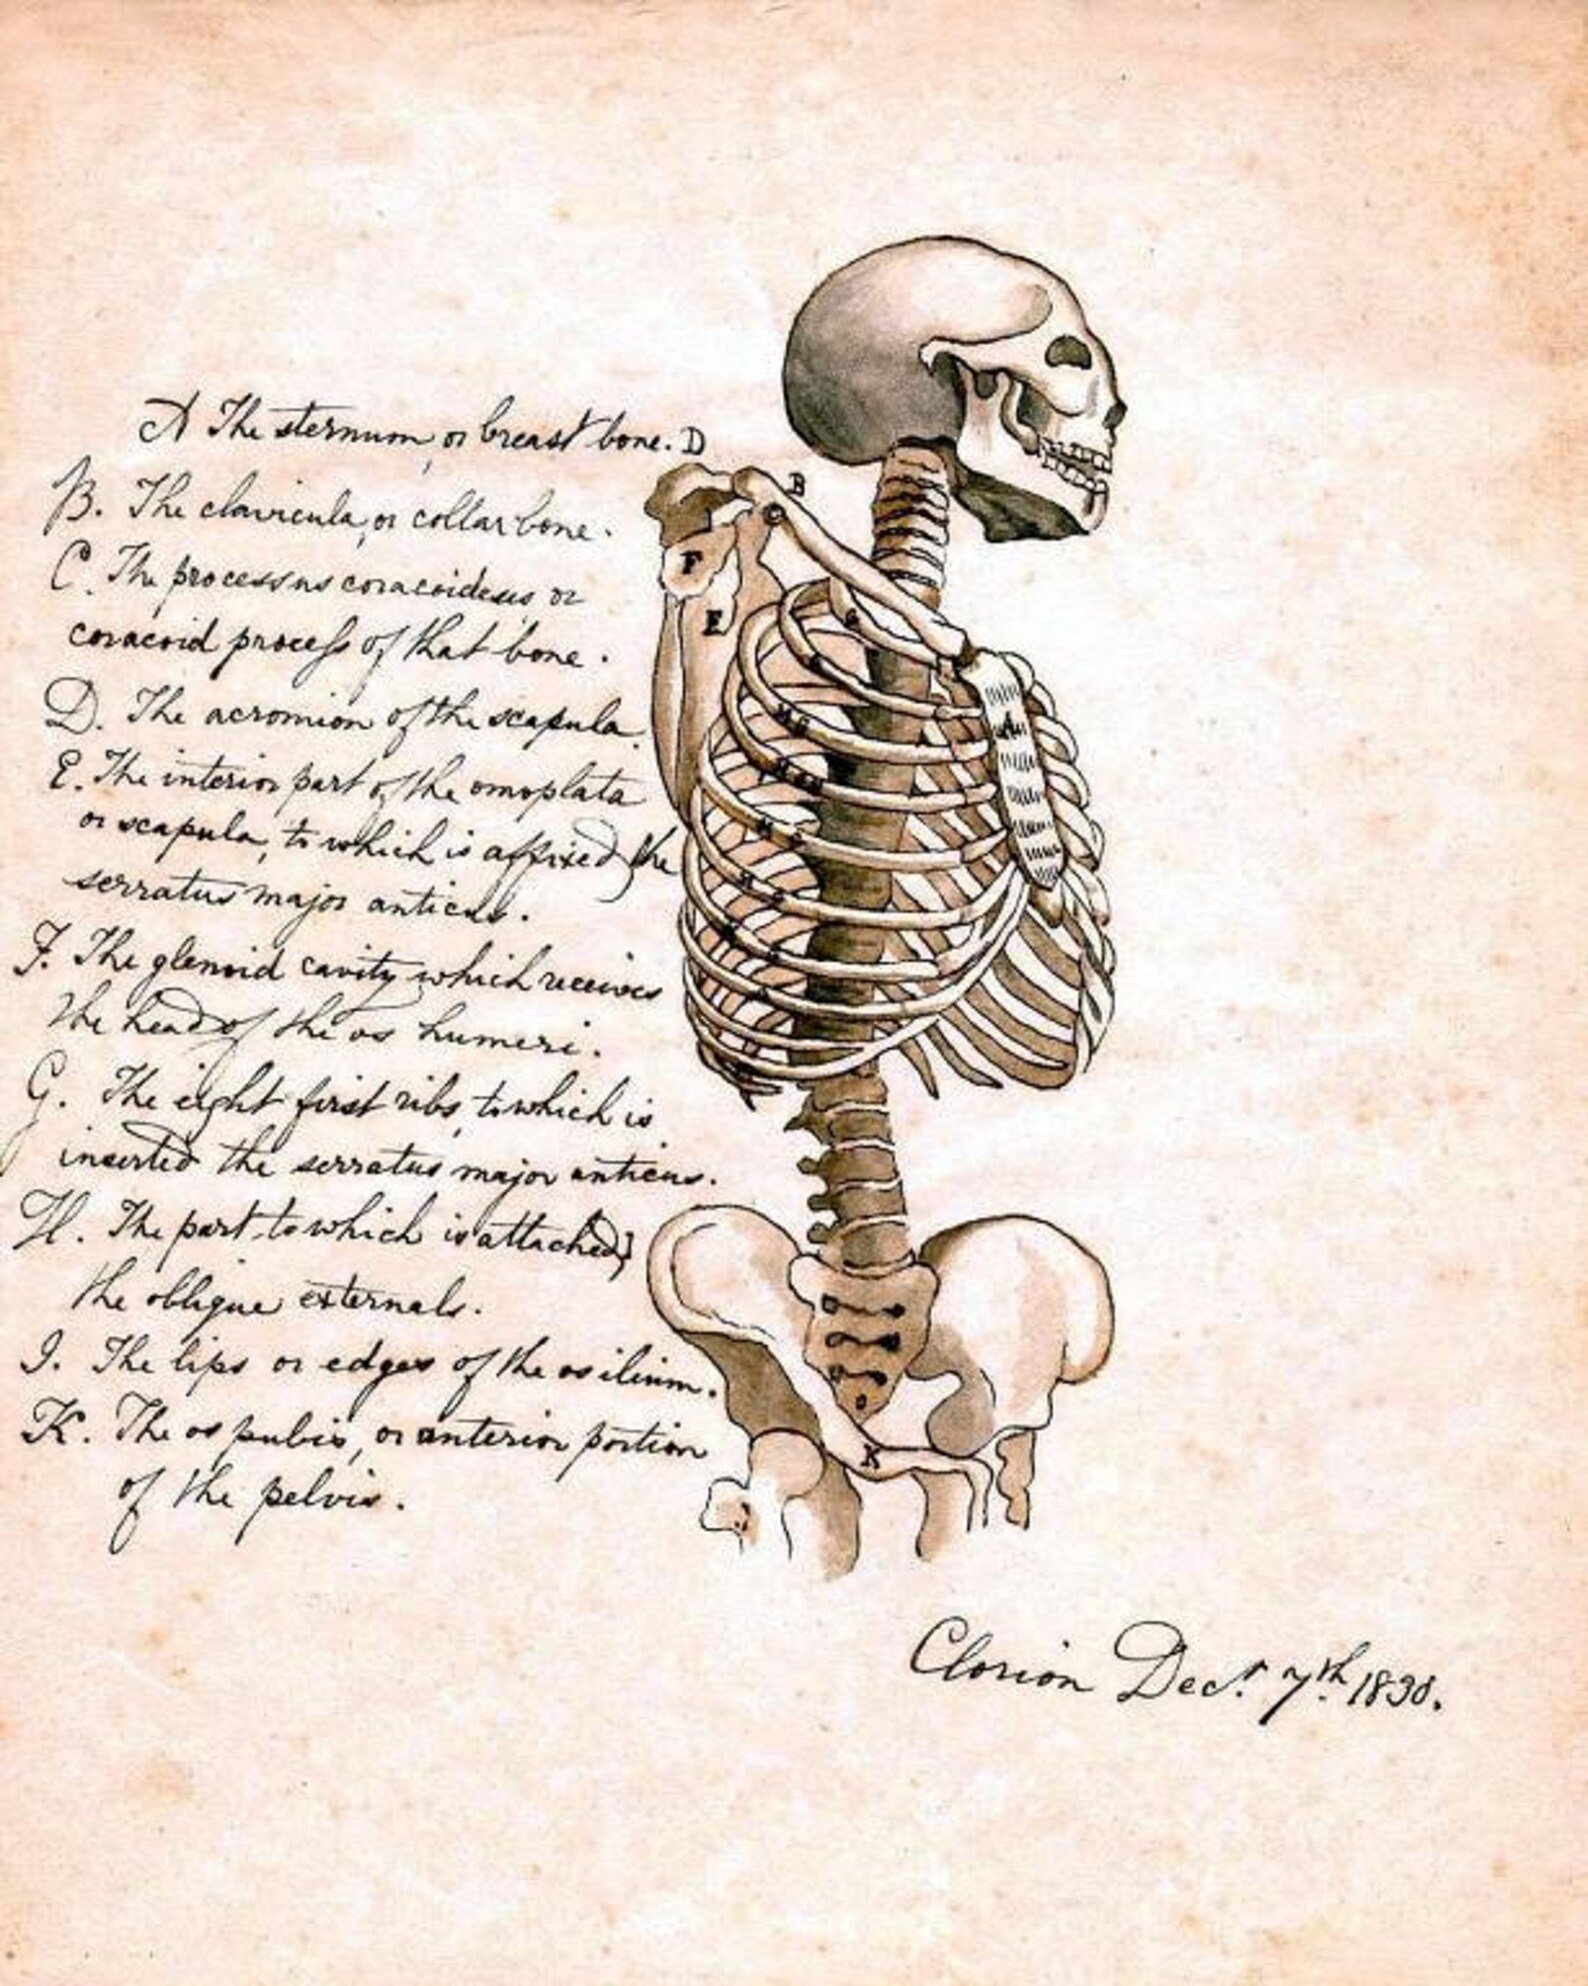 A The sternum, or breast bone.
B. The clavicula, or collar bone.
C. The processus coracoideus, or
coracoid process of that bone.
D. The acromion of the scapula.
E. The interior part of the omoplata
or scapula, to which is affixed the
serratus major anticus.
F. The glenoid cavity which receives
the head of the os humeri.
G. The eight first ribs, to which is
inserted the serratus major anticus.
H. The part to which is attached
the oblique externals.
I. The lips or edges of the os ilium.
K. The os pubis, or anterior portion
of the pelvis.
D
B
C
F
E
G
A
K
Clorion Decr. 7th 1830.